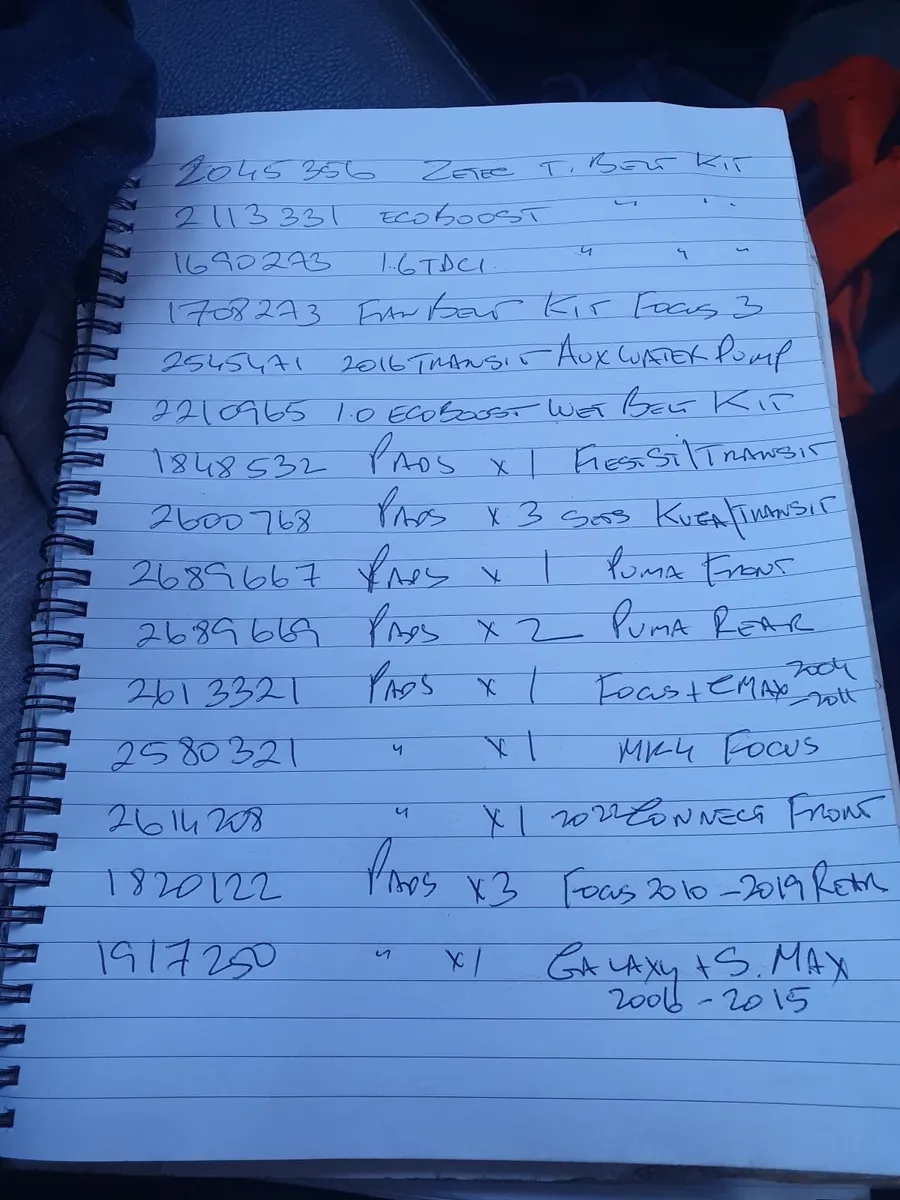 2045356 ZETEC T. BELT KIT
2113331 ECOBOOST " "
1690273 1.6TDCI " " "
1708273 FAN BELT KIT FOCUS 3
2545471 2016 TRANSIT AUX WATER PUMP
2210965 1.0 ECOBOOST WET BELT KIT
1848532 PADS x 1 /TRANSIT
2600768 PADS x 3 SETS KUGA/TRANSIT
2689667 PADS x 1 PUMA FRONT
2689669 PADS x 2 PUMA REAR
2613321 PADS x 1 FOCUS + CMAX 2004 - 2011
2580321 " x 1 MK4 FOCUS
2614208 " x 1 2022 CONNECT FRONT
1820122 PADS x 3 FOCUS 2010 - 2019 REAR
1917250 " x 1 GALAXY + S. MAX
2006 - 2015